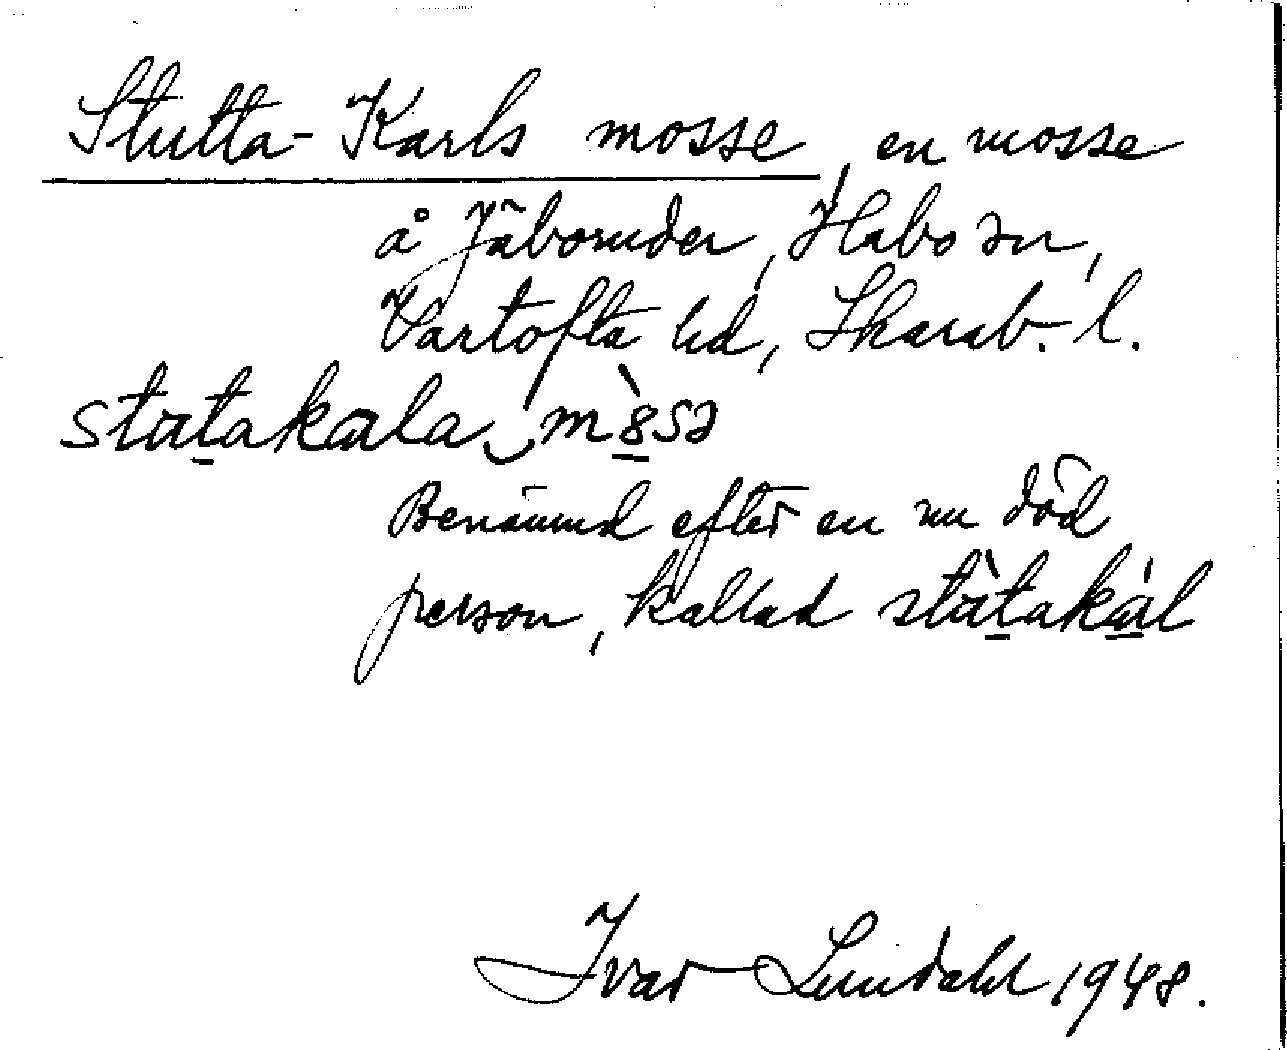 Stutta-Karls mosse, en mosse
å Jäboruder, Habo sn,
Vartofta hd, Skarab. l.
statakala mösə
Benämnd efter en nu död
person, kallad stàtakál
Ivar Lundahl 1948.